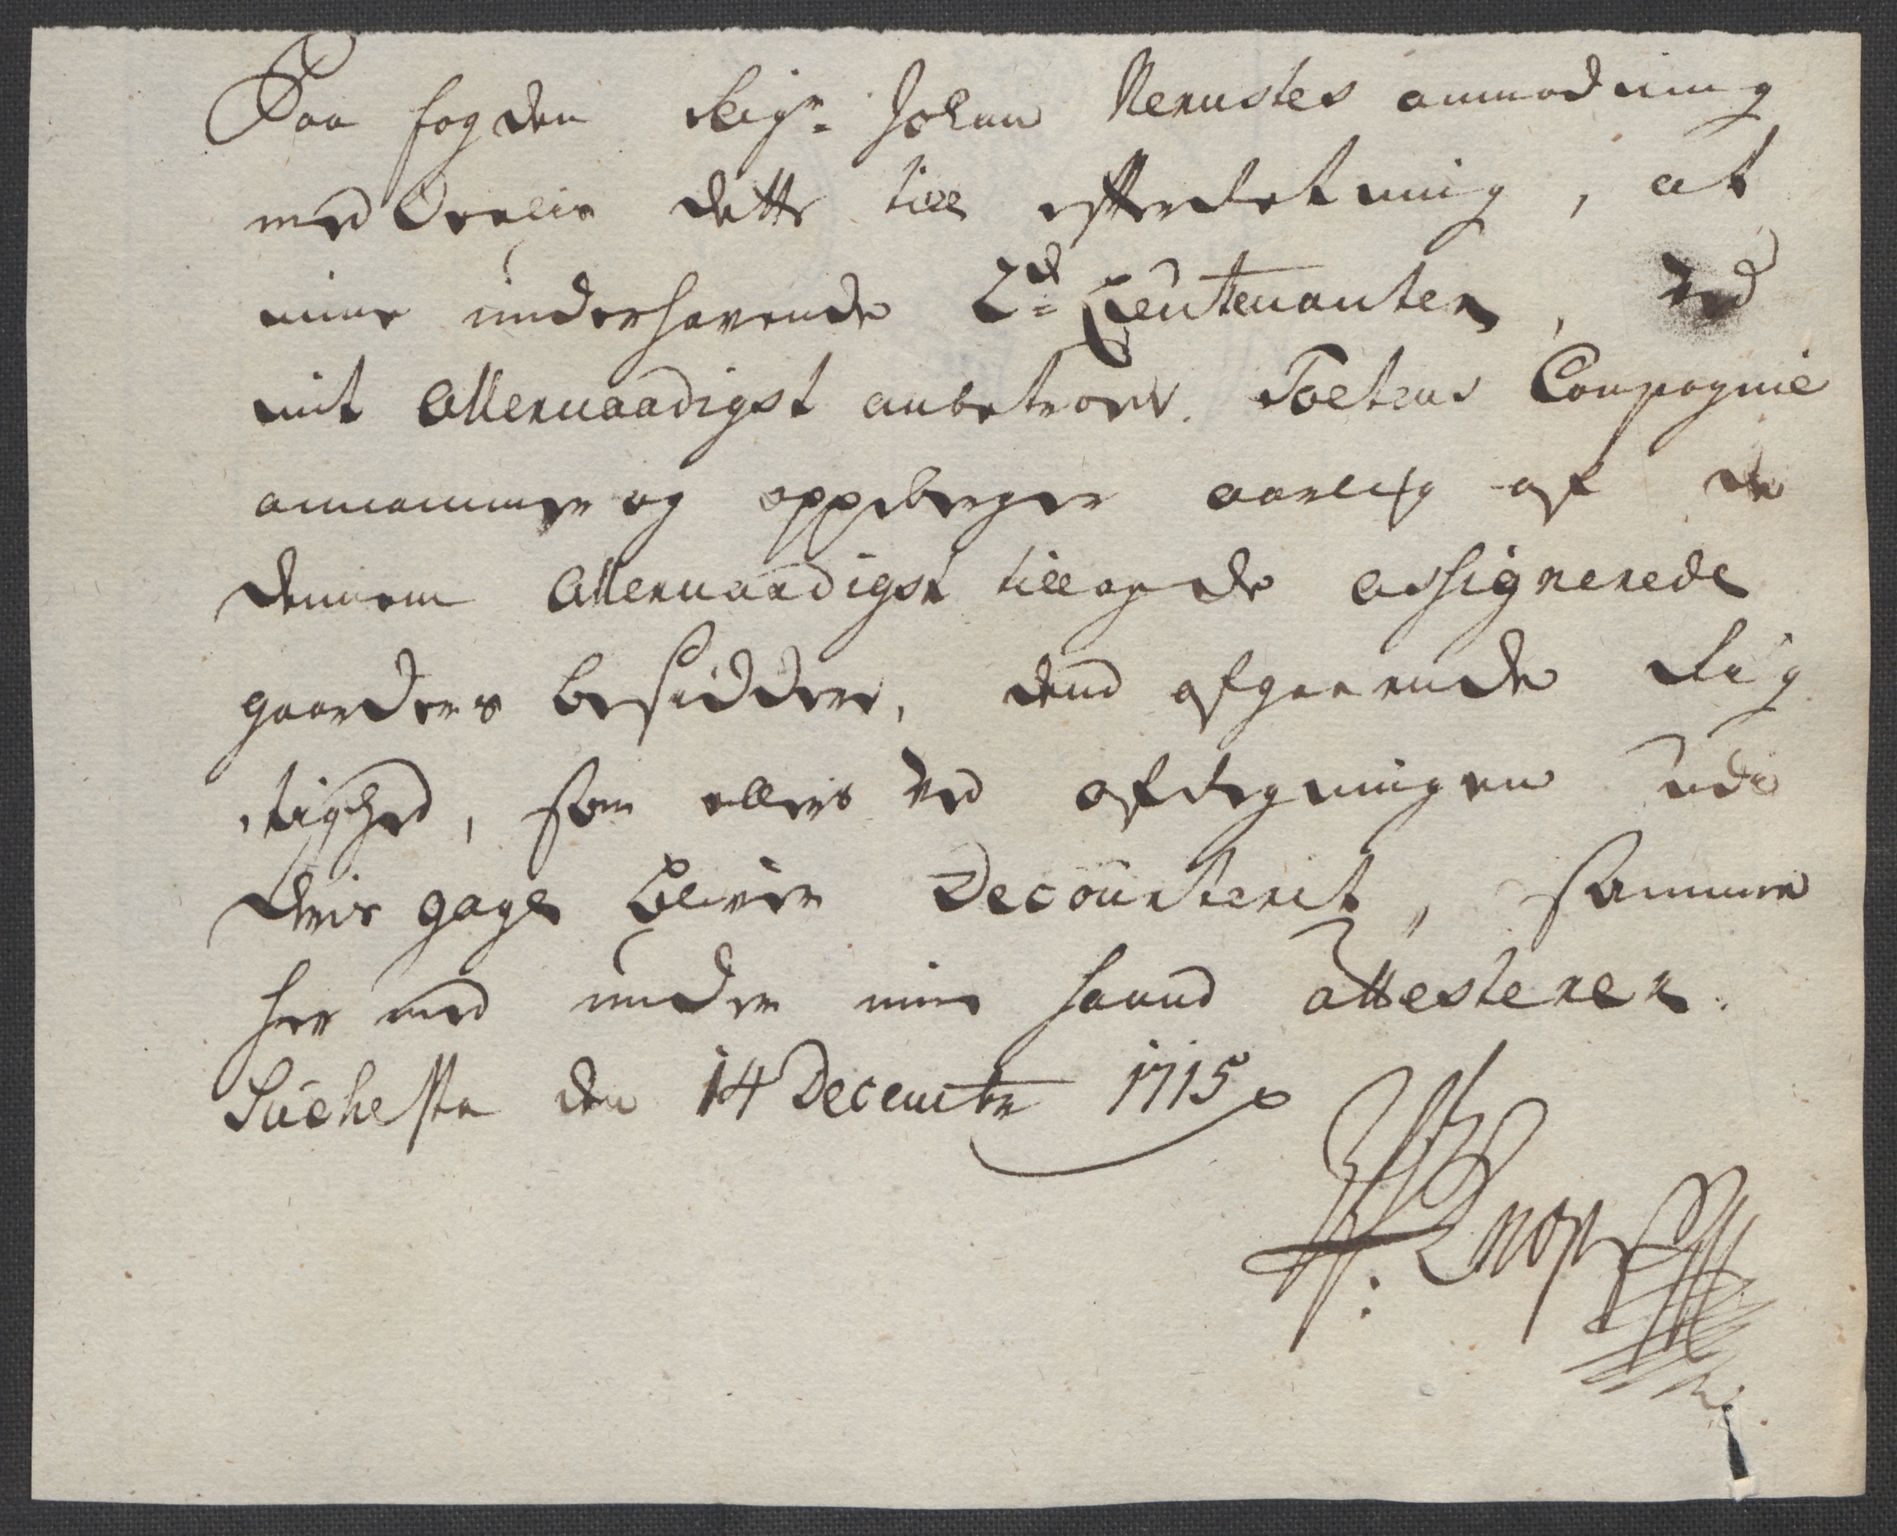 Paa fogden Seigr. Johan Nerustes anmodning
med Deelis dette till efterretning, at
mine underhavende 2d. Lieutenanter, ved
mit Allernaadigst anbetroet Compagnie
annammer og oppeberger aarlig af de
dennem Allernaadigst tillagde assignerede
gaarders besiddere, dend afgaaende Rig
tighed, som ellers ved afregningen udi
deris gage bliver Decourterit, samme
her med under min haand attesterer.
den 14 Decembr 1715
Knoph